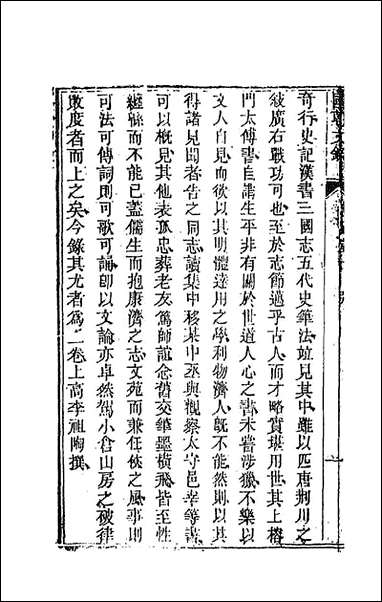 國朝文錄
奇行史記漢書三國志五代史筆法並見其中雖以匹唐荆川之
敍廣右戰功可也至於志節邁乎古人而才略實堪用世其上楷
門太傅書自謂生平非有關於世道人心之書未嘗涉獵不樂以
文人自見而欲以其明體達用之學利物濟人旣不能然則以其
得諸見聞者告之同志讀集中移某中丞與觀察太守邑宰等書
可以槪見其他表孤忠葬老友篤師誼念舊交筆墨橫飛皆至性
纏緜而不能已蓋儒生而抱康濟之志文苑而兼任俠之風事則
可法可傳詞則可歌可誦卽以文論亦卓然駕小倉山房之破律
敗度者而上之矣今錄其尤者爲二卷上高李祖陶撰